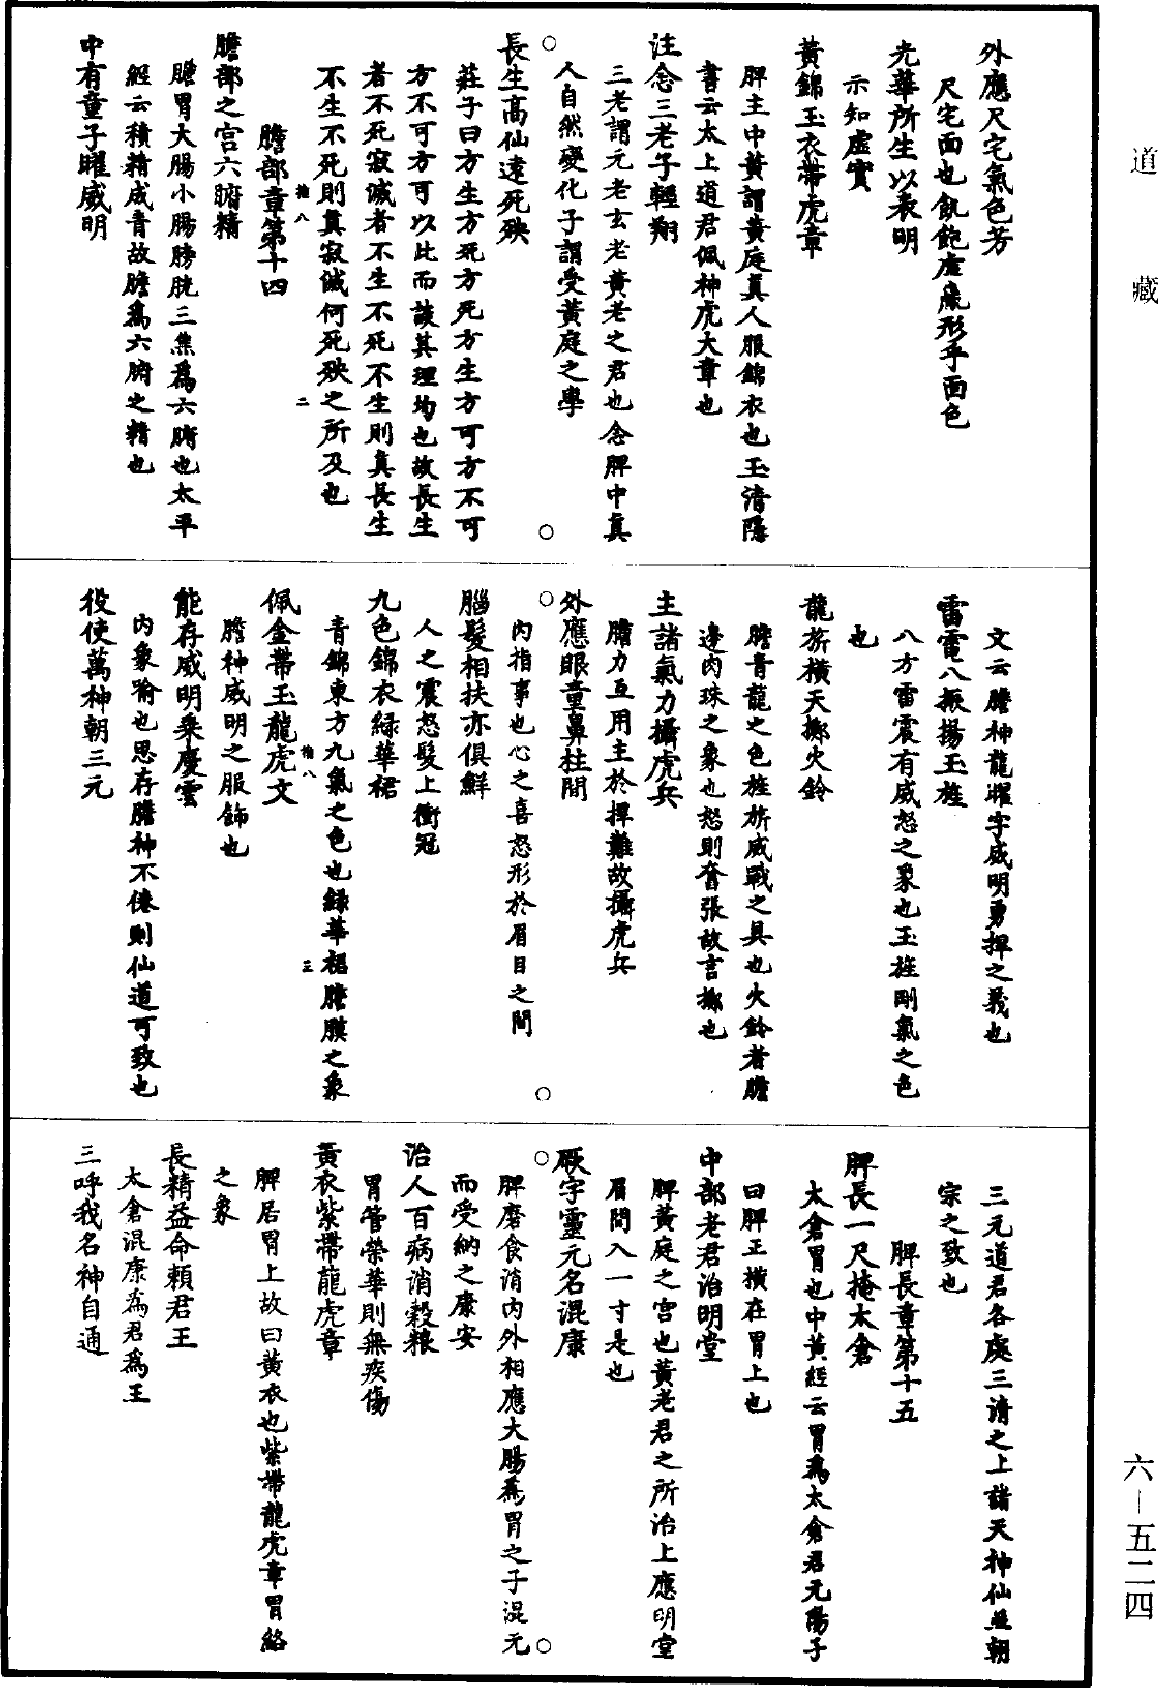 道藏
外應尺宅氣色芳
尺宅面也飢飽虛羸形乎面色
光華所生以表明
示知虛實
黃錦玉衣帶虎章
脾主中黃謂黃庭真人服錦衣也玉清隱
書云太上道君佩神虎大章也
注念三老子輕翔
三老謂元老玄老黃老之君也念脾中真
人自然變化子謂受黃庭之學
長生高仙遠死殃
莊子曰方生方死方死方生方可方不可
方不可方可以此而談其理均也故長生
者不死寂滅者不生不死不生則真長生
不生不死則真寂滅何死殃之所及也
膽部章第十四
膽部之宮六腑精
膽胃大腸小腸膀胱三焦為六腑也太平
經云積精成青故膽為六腑之精也
中有童子曜威明
文云膽神龍曜字威明勇捍之義也
雷電八振揚玉旌
八方雷震有威怒之象也玉旌剛氣之色
也
龍旂橫天擲火鈴
膽青龍之色旌旂威戰之具也火鈴者膽
邊肉珠之象也怒則奮張故言擲也
主諸氣力攝虎兵
膽力互用主於捍難故攝虎兵
外應眼童鼻柱間
內指事也心之喜怒形於眉目之間
腦髮相扶亦俱鮮
人之震怒髮上衝冠
九色錦衣綠華裙
青錦東方九氣之色也綠華裙膽膜之象
佩金帶玉龍虎文
膽神威明之服飾也
能存威明乘慶雲
內象喻也思存膽神不倦則仙道可致也
役使萬神朝三元
三元道君各處三清之上諸天神仙並朝
宗之致也
脾長章第十五
脾長一尺掩太倉
太倉胃也中黃經云胃為太倉君元陽子
曰脾正橫在胃上也
中部老君治明堂
脾黃庭之宮也黃老君之所治上應明堂
眉間入一寸是也
厥字靈元名混康
脾磨食消內外相應大腸為胃之子混元
而受納之康安
治人百病消穀粮
胃管榮華則無疾傷
黃衣紫帶龍虎章
脾居胃上故曰黃衣也紫帶龍虎章胃絡
之象
長精益命賴君王
太倉混康為君為王
三呼我名神自通
六－五二四